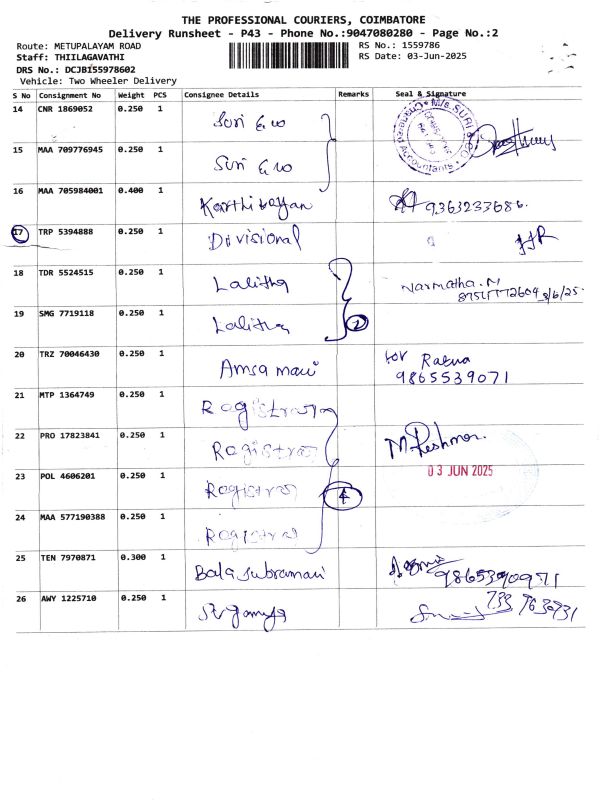 THE PROFESSIONAL COURIERS, COIMBATORE
Delivery Runsheet - P43 - Phone No.:9047080280 - Page No.:2
Route: METUPALAYAM ROAD
RS No.: 1559786
Staff: THIILAGAVATHI
RS Date: 03-Jun-2025
DRS No.: DCJB155978602
Vehicle: Two Wheeler Delivery
S No Consignment No Weight PCS Consignee Details Remarks Seal & Signature
14 CNR 1869052 0.250 1 Suri & co
M/s. SURI & CO.
Accountants
15 MAA 709776945 0.250 1 Suri & co
16 MAA 705984001 0.400 1 Karthikayan 9363233686.
17 TRP 5394888 0.250 1 Divisional
18 TDR 5524515 0.250 1 Lalitha Narmatha.M
3/6/25.
19 SMG 7719118 0.250 1 Lalitha 2
20 TRZ 70046430 0.250 1 Amsa mani for Ratna
9865539071
21 MTP 1364749 0.250 1 Registrar
22 PRO 17823841 0.250 1 Registrar M. Reshma.
03 JUN 2025
23 POL 4606201 0.250 1 Registrar 4
24 MAA 577190388 0.250 1 Registrar
25 TEN 7970871 0.300 1 Bala subramani 9865390971
26 AWY 1225710 0.250 1